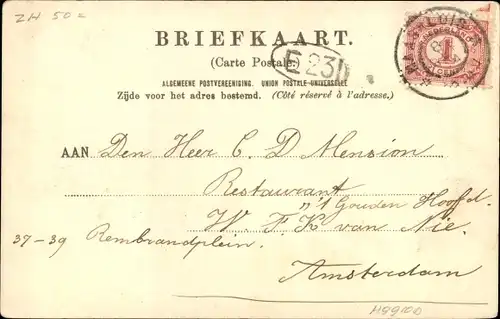 ZH 50=
BRIEFKAART.
(Carte Postale.)
E 23
ALGEMEENE POSTVEREENIGING. UNION POSTALE UNIVERSELLE
Zijde voor het adres bestemd. (Côté réservé à l'adresse.)
MAASSLUIS
NEDERLAND
1
CENT
AAN Den Heer C. D Mension
Restaurant
"'t Gouden Hoofd.
W. F. K van Nie.
37-39 Rembrandplein.
Amsterdam